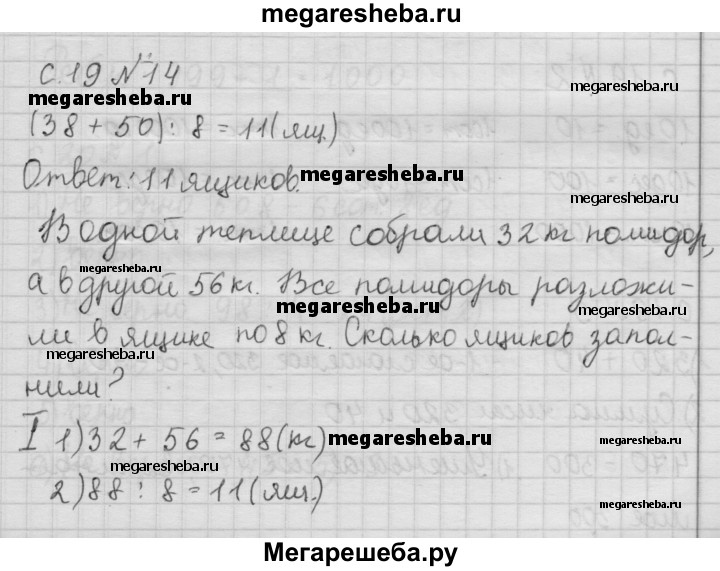 megaresheba.ru
с.19 № 14
megaresheba.ru
megaresheba.ru
(38 + 50) : 8 = 11 (ящ.)
megaresheba.ru
Ответ: 11 ящиков. megaresheba.ru
megaresheba.ru
В одной теплице собрали 32 кг помидор,
megaresheba.ru
а в другой 56 кг. Все помидоры разложи-
megaresheba.ru
ли в ящике по 8 кг. Сколько ящиков запол-
megaresheba.ru
megaresheba.ru
нили?
I 1) 32 + 56 = 88 (кг) megaresheba.ru
megaresheba.ru
megaresheba.ru
2) 88 : 8 = 11 (ящ.)
megaresheba.ru
Мегарешеба.ру